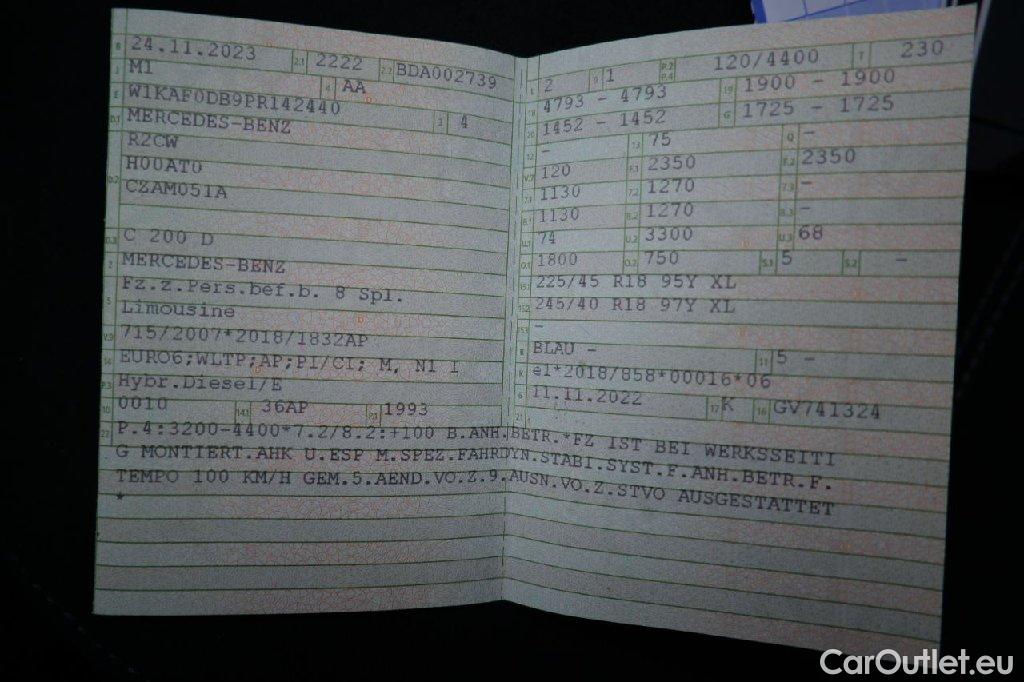 B 24.11.2023 2.1 2222 2.2 BDA002739
J M1 4 AA
E W1KAF0DB9PR142440 3 4
D.1 MERCEDES-BENZ
R2CW
D.2 H00AT0
CZAM051A
D.3 C 200 D
2 MERCEDES-BENZ
5 Fz.z.Pers.bef.b. 8 Spl.
Limousine
V.9 715/2007*2018/1832AP
14 EURO6;WLTP;AP;PI/CI; M, N1 I
P.3 Hybr.Diesel/E
10 0010 14.1 36AP P.1 1993
L 2 9 1 P.2 P.4 120/4400 T 230
18 4793 - 4793 19 1900 - 1900
20 1452 - 1452 G 1725 - 1725
12 - 13 75 Q -
V.7 120 F.1 2350 F.2 2350
7.1 1130 7.2 1270 7.3 -
8.1 1130 8.2 1270 8.3 -
U.1 74 U.2 3300 U.3 68
O.1 1800 O.2 750 S.1 5 S.2 -
15.1 225/45 R18 95Y XL
15.2 245/40 R18 97Y XL
15.3 -
R BLAU - 11 5 -
K e1*2018/858*00016*06
6 11.11.2022 17 K 16 GV741324
21
22 P.4:3200-4400*7.2/8.2:+100 B.ANH.BETR.*FZ IST BEI WERKSSEITI
G MONTIERT.AHK U.ESP M.SPEZ.FAHRDYN.STABI.SYST.F.ANH.BETR.F.
TEMPO 100 KM/H GEM.5.AEND.VO.Z.9.AUSN.VO.Z.STVO AUSGESTATTET
*
CarOutlet.eu